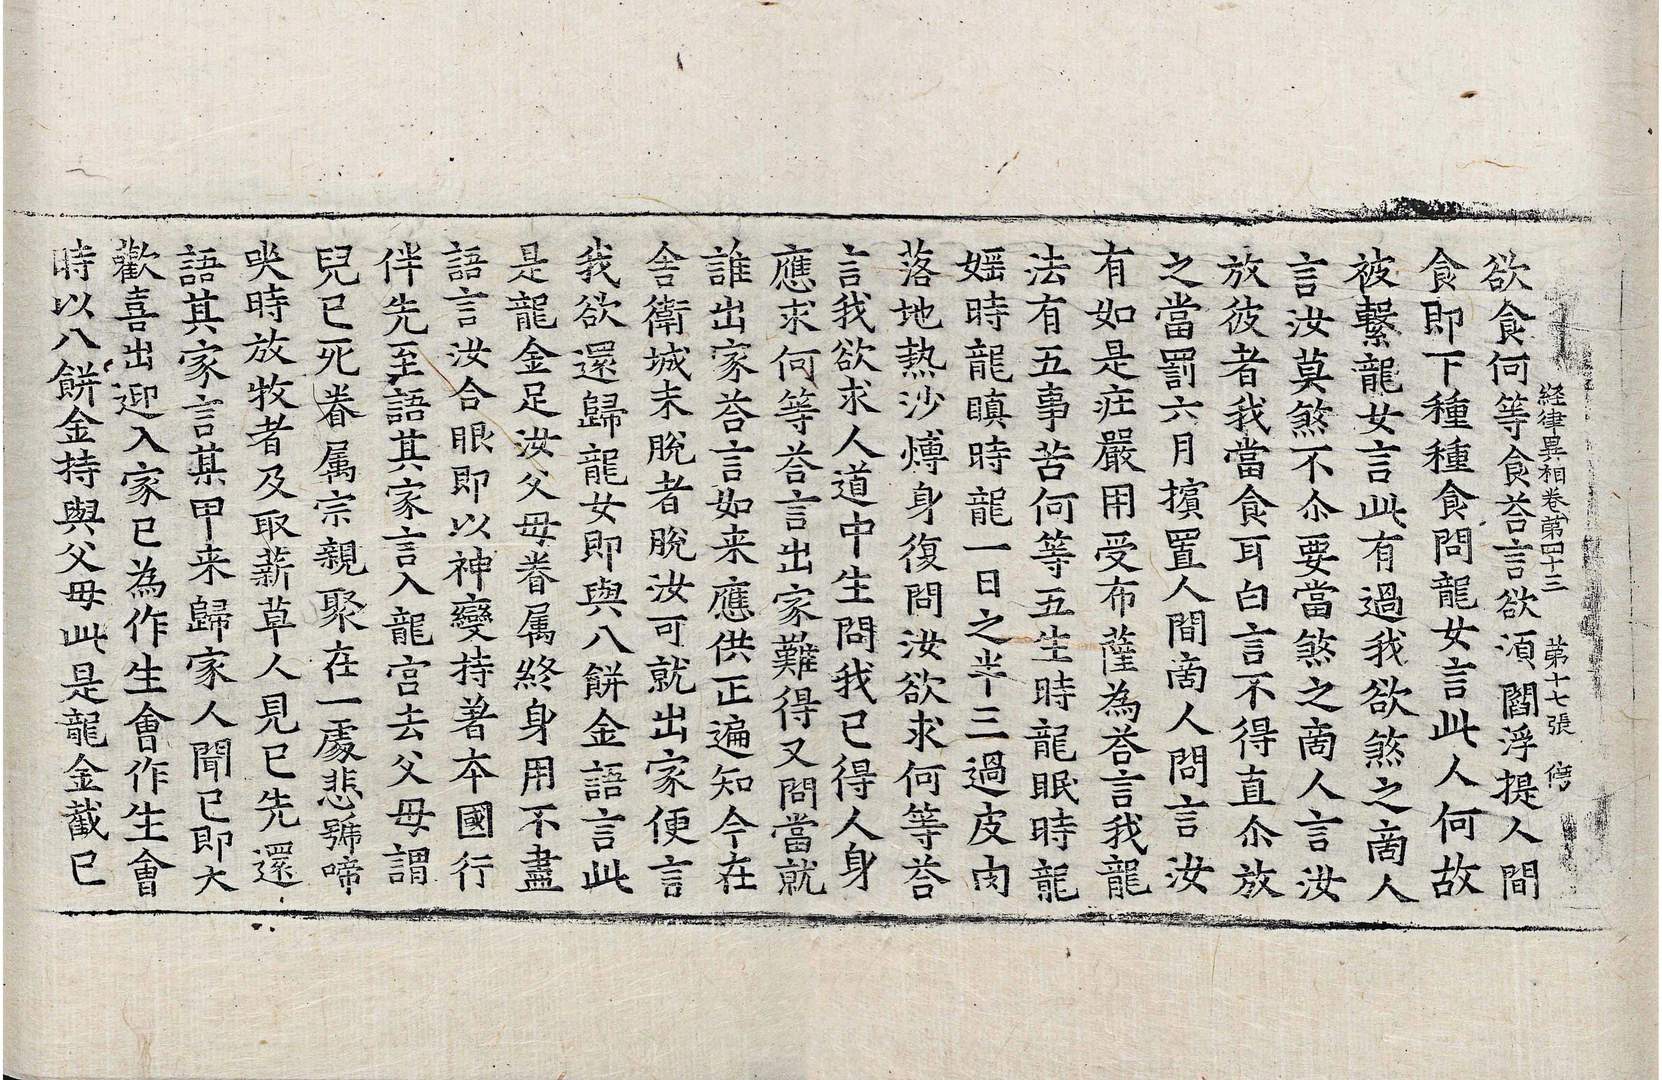 経律異相卷第四十三　第十七張　俜
欲食何等食荅言欲湏閻浮提人間
食即下種種食問龍女言此人何故
被繫龍女言此有過我欲煞之啇人
言汝莫煞不尒要當煞之啇人言汝
放彼者我當食耳白言不得直尒放
之當罰六月擯置人間啇人問言汝
有如是庄嚴用受布薩為荅言我龍
法有五事苦何等五生時龍眠時龍
婬時龍瞋時龍一日之半三過皮肉
落地熱沙煿身復問汝欲求何等荅
言我欲求人道中生問我已得人身
應求何等荅言出家難得又問當就
誰出家荅言如来應供正遍知今在
舍衛城未脫者脫汝可就出家便言
我欲還歸龍女即與八餅金語言此
是龍金足汝父母眷属終身用不盡
語言汝合眼即以神變持著本國行
伴先至語其家言入龍宫去父母謂
兒已死眷属宗親聚在一處悲號啼
哭時放牧者及取薪草人見已先還
語其家言某甲来歸家人聞已即大
歡喜出迎入家已為作生會作生會
時以八餅金持與父母此是龍金截已